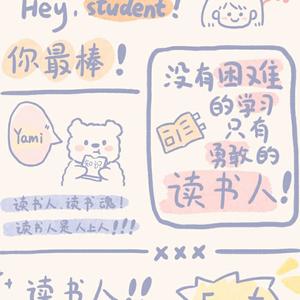 Hey, student!
你最棒!
没有困难
的学习
只有
勇敢的
读书人!
Yami
知识
读书人,读书魂!
读书人是人上人!!!
×××
读书人!!